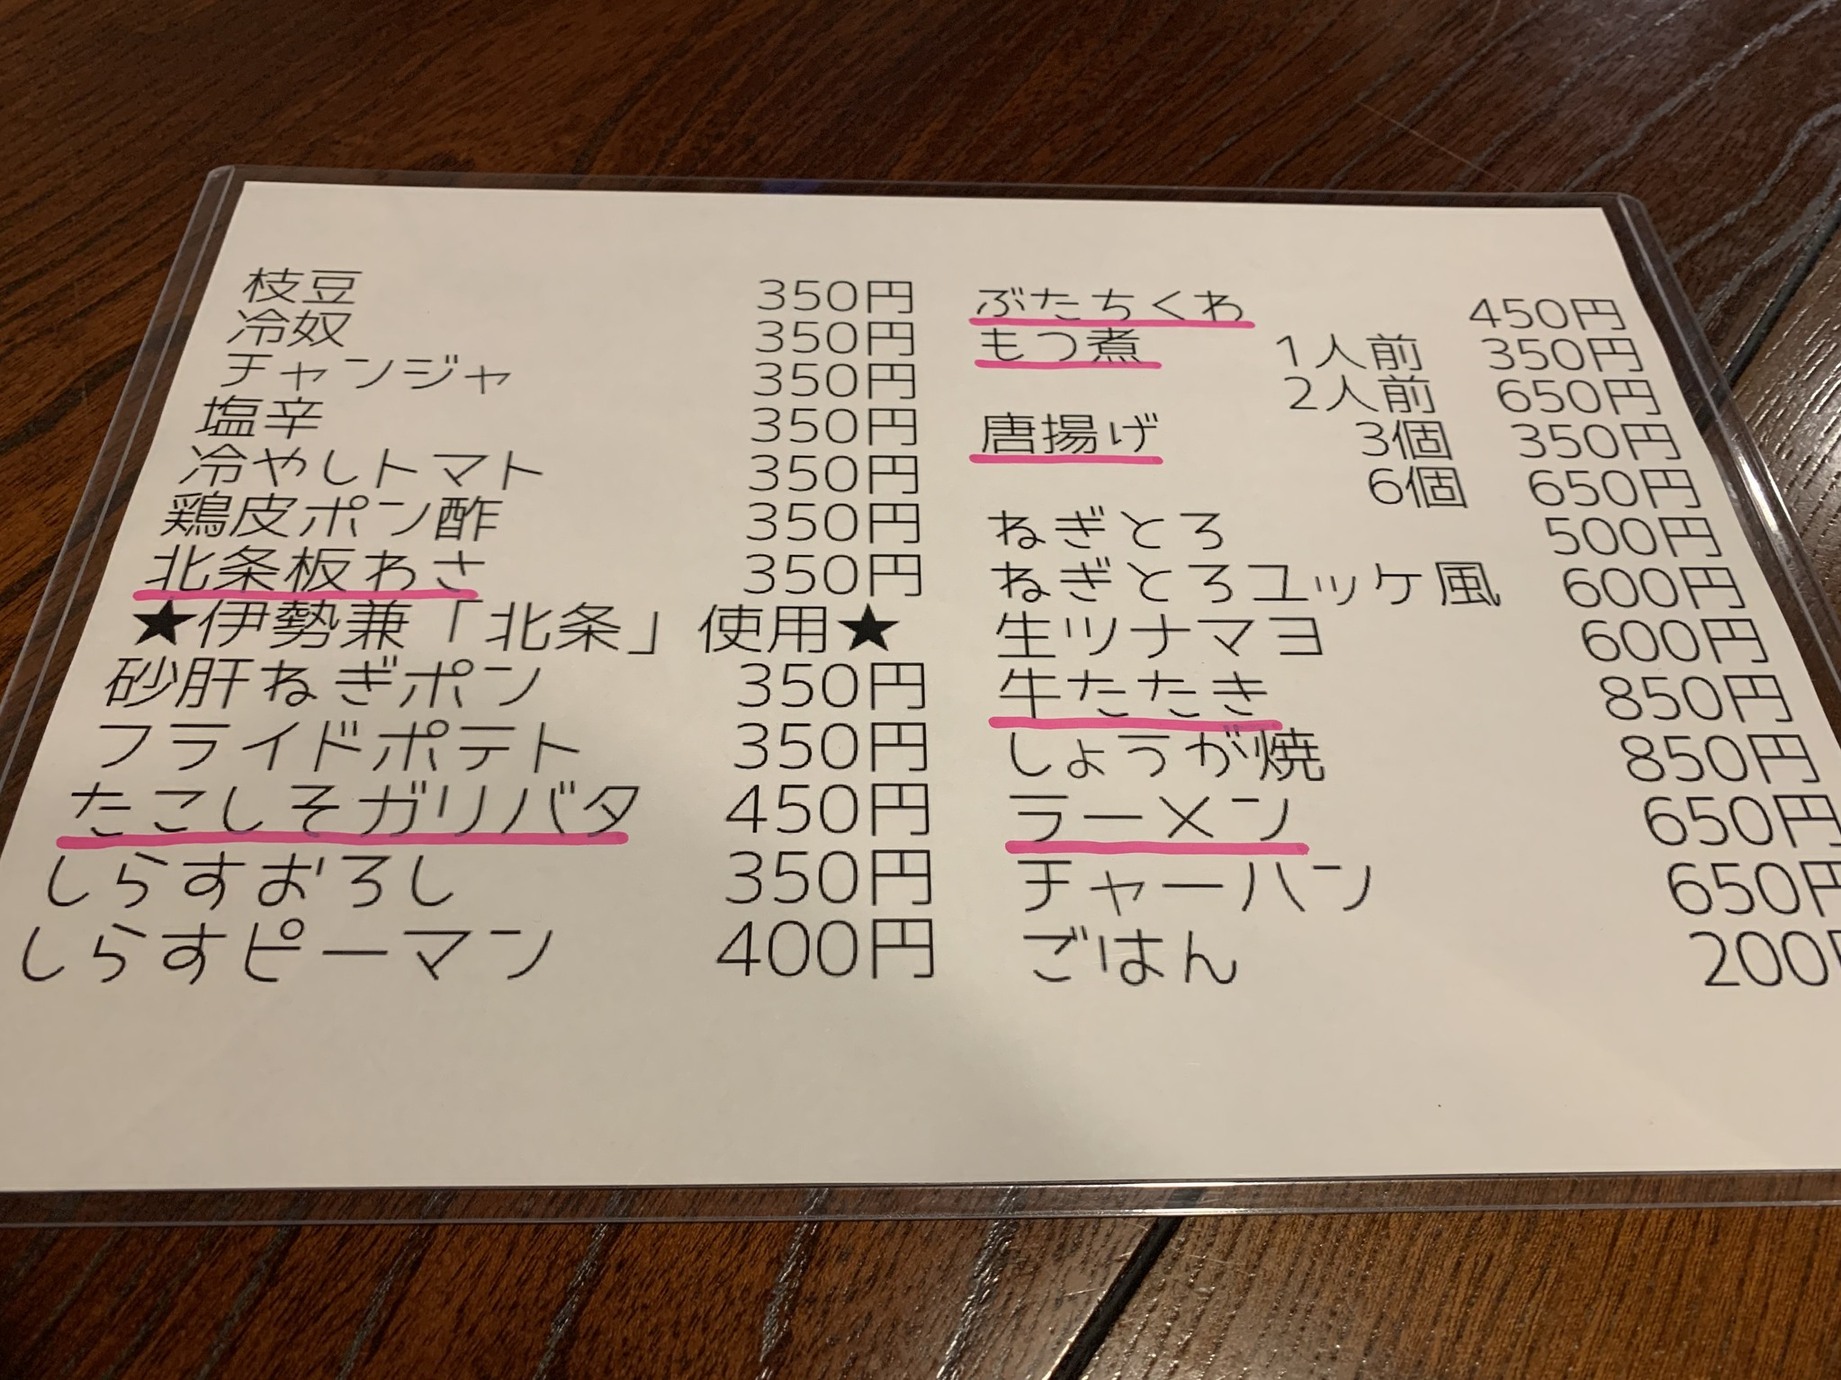 枝豆 350円
冷奴 350円
チャンジャ 350円
塩辛 350円
冷やしトマト 350円
鶏皮ポン酢 350円
北条板わさ 350円
★伊勢兼「北条」使用★
砂肝ねぎポン 350円
フライドポテト 350円
たこしそガリバタ 450円
しらすおろし 350円
しらすピーマン 400円
ぶたちくわ 450円
もつ煮 1人前 350円
2人前 650円
唐揚げ 3個 350円
6個 650円
ねぎとろ 500円
ねぎとろユッケ風 600円
生ツナマヨ 600円
牛たたき 850円
しょうが焼 850円
ラーメン 650円
チャーハン 650円
ごはん 200円